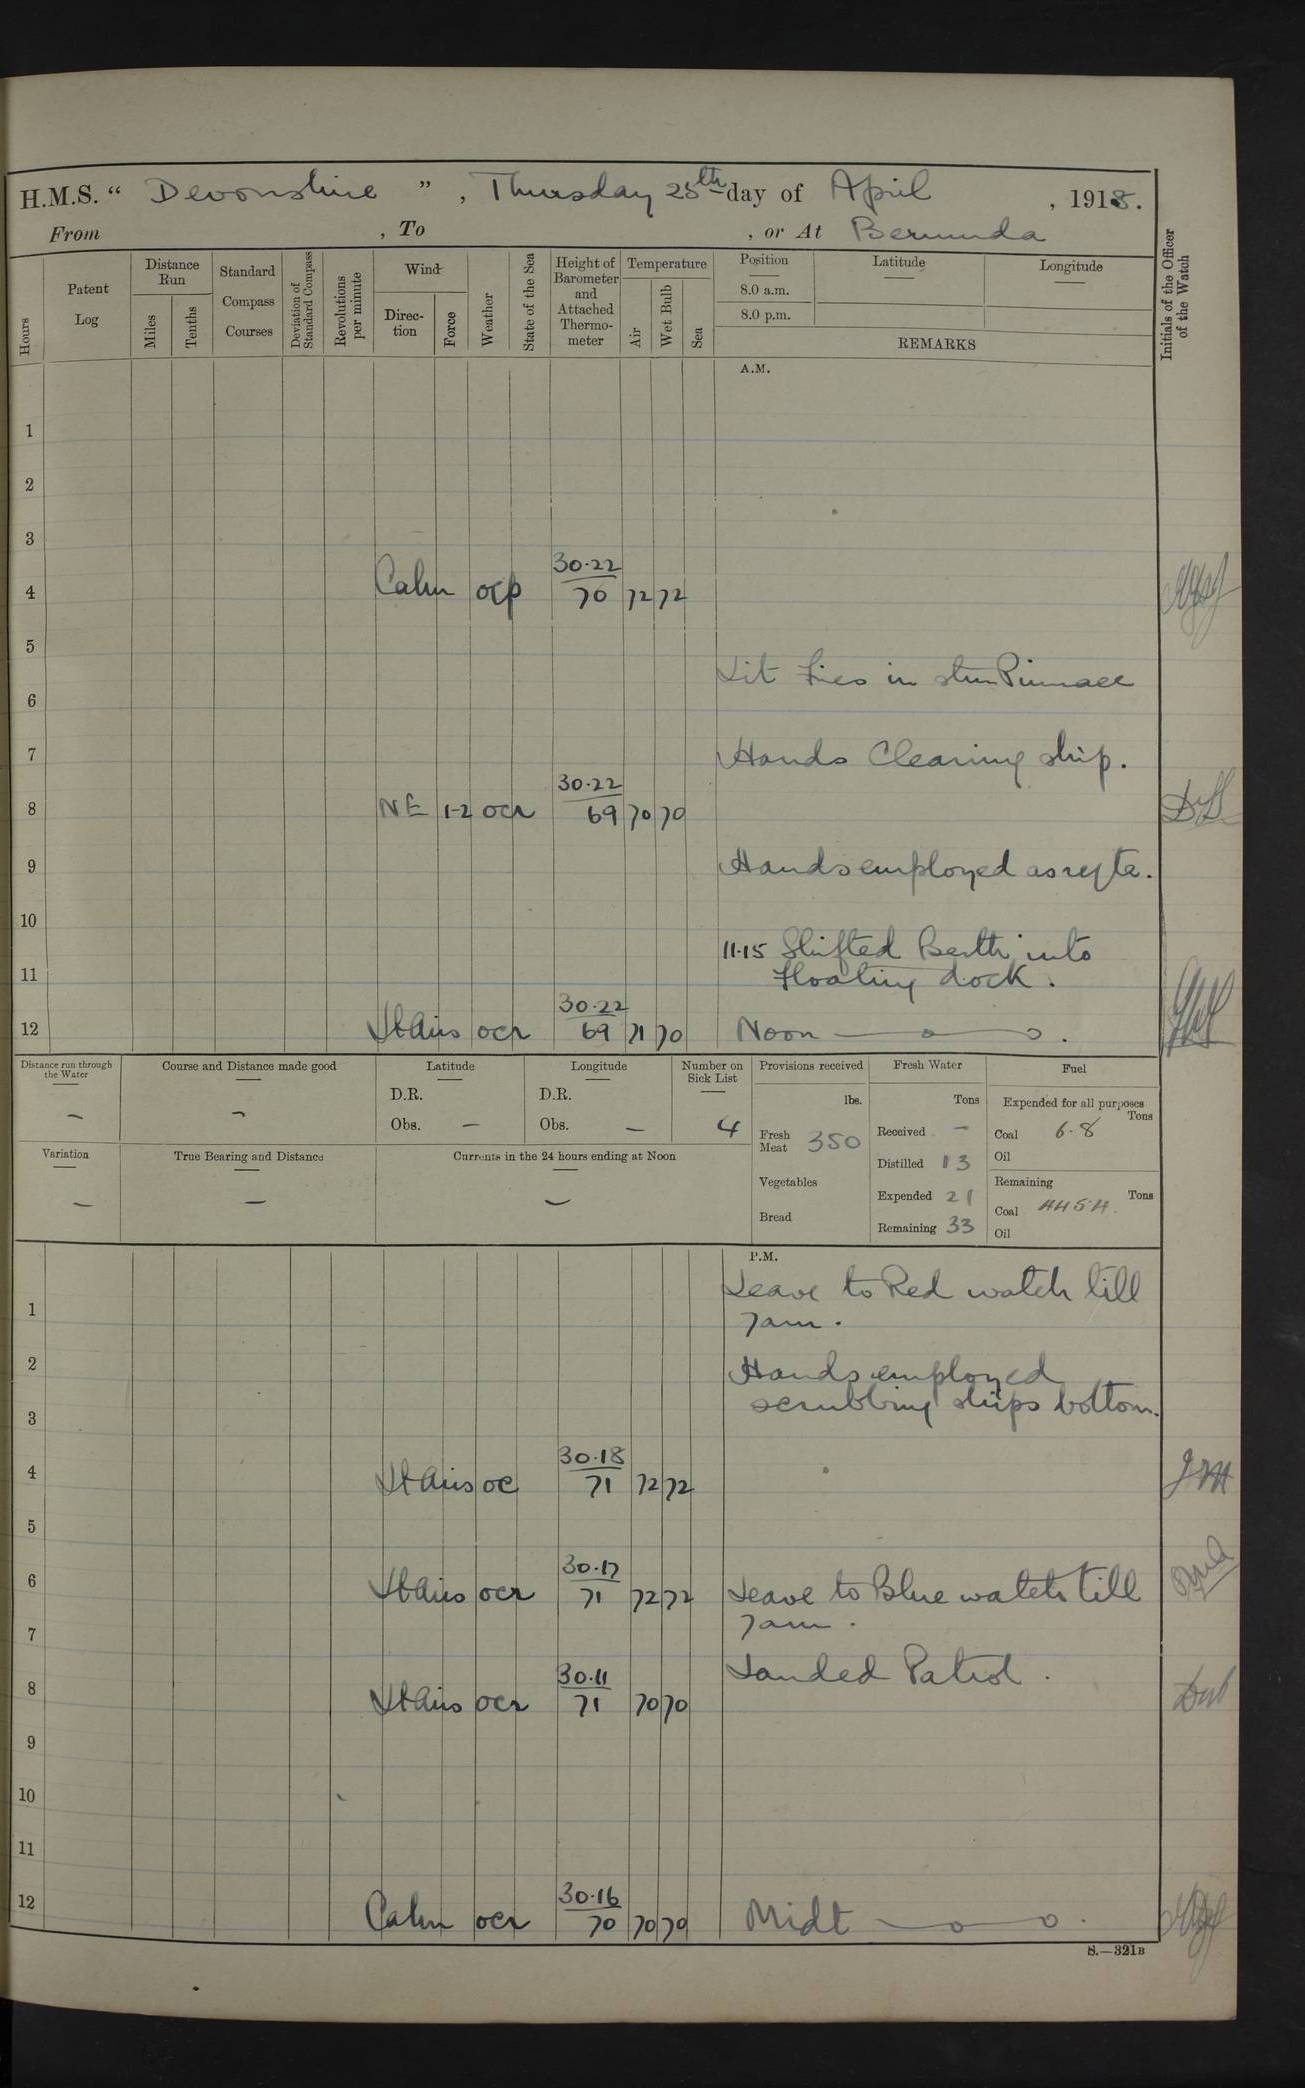 H.M.S. " Devonshire ", Thursday 25th day of April, 1918.
From , To , or At Bermuda
Hours
Patent Log
Distance Run
Miles
Tenths
Standard Compass Courses
Deviation of Standard Compass
Revolutions per minute
Wind
Direction
Force
Weather
State of the Sea
Height of Barometer and Attached Thermometer
Temperature
Air
Wet Bulb
Sea
Position
8.0 a.m.
8.0 p.m.
Latitude
Longitude
REMARKS
Initials of the Officer of the Watch
A.M.
1
2
3
30.22
4 Calm ocp 70 72 72
5
Lit fires in stm Pinnace
6
7 Hands Cleaning ship.
30.22
8 NE 1-2 ocr 69 70 70
9 Hands employed as reqte.
10
11.15 Shifted Berth into
11 Floating dock.
30.22
12 Lt Airs ocr 69 71 70 Noon
Distance run through the Water
—
Course and Distance made good
—
Latitude
D.R.
Obs. —
Longitude
D.R.
Obs. —
Number on Sick List
4
Provisions received
lbs.
Fresh Meat 350
Vegetables
Bread
Fresh Water
Tons
Received —
Distilled 13
Expended 21
Remaining 33
Fuel
Expended for all purposes
Tons
Coal 6.8
Oil
Remaining
Tons
Coal 445.4.
Oil
Variation
—
True Bearing and Distance
—
Currents in the 24 hours ending at Noon
—
P.M.
Leave to Red watch till
1 7am.
2 Hands employed
3 scrubbing ships bottom.
30.18
4 Lt Airs oc 71 72 72
5
30.17
6 Lt Airs ocr 71 72 72 Leave to Blue watch till
7 7am.
30.11 Landed Patrol.
8 Lt Airs ocr 71 70 70
9
10
11
30.16
12 Calm ocr 70 70 70 Midt
S.—321B